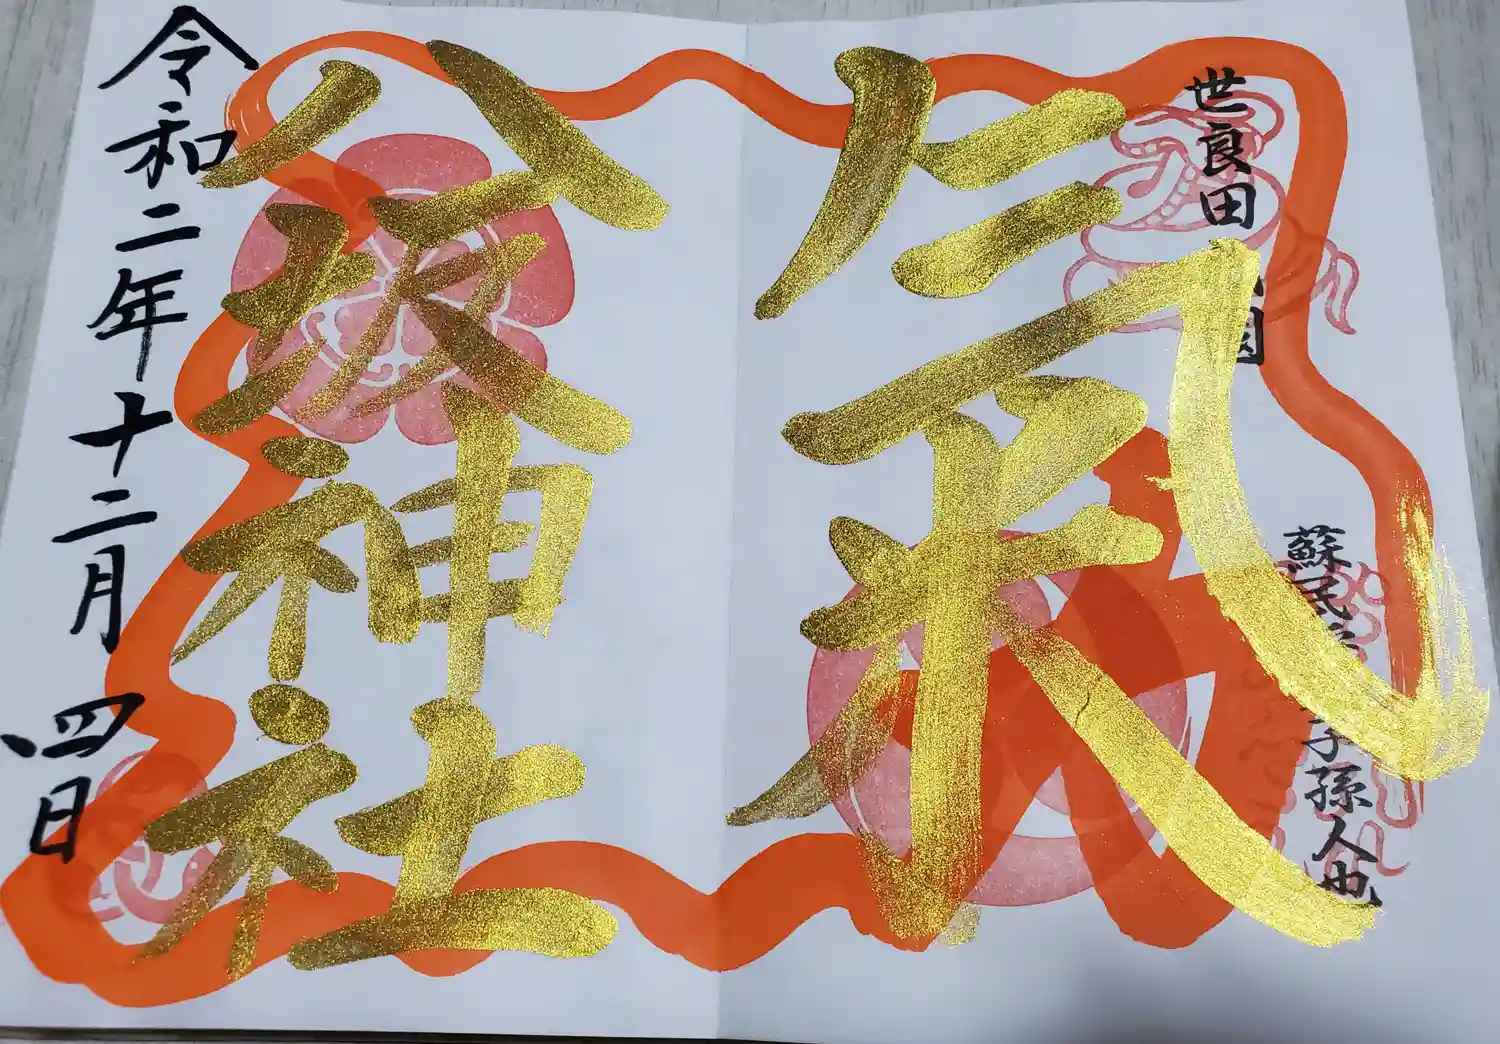 世良田 園
蘇民 子孫人也
氣
八坂神社
令和二年十二月四日